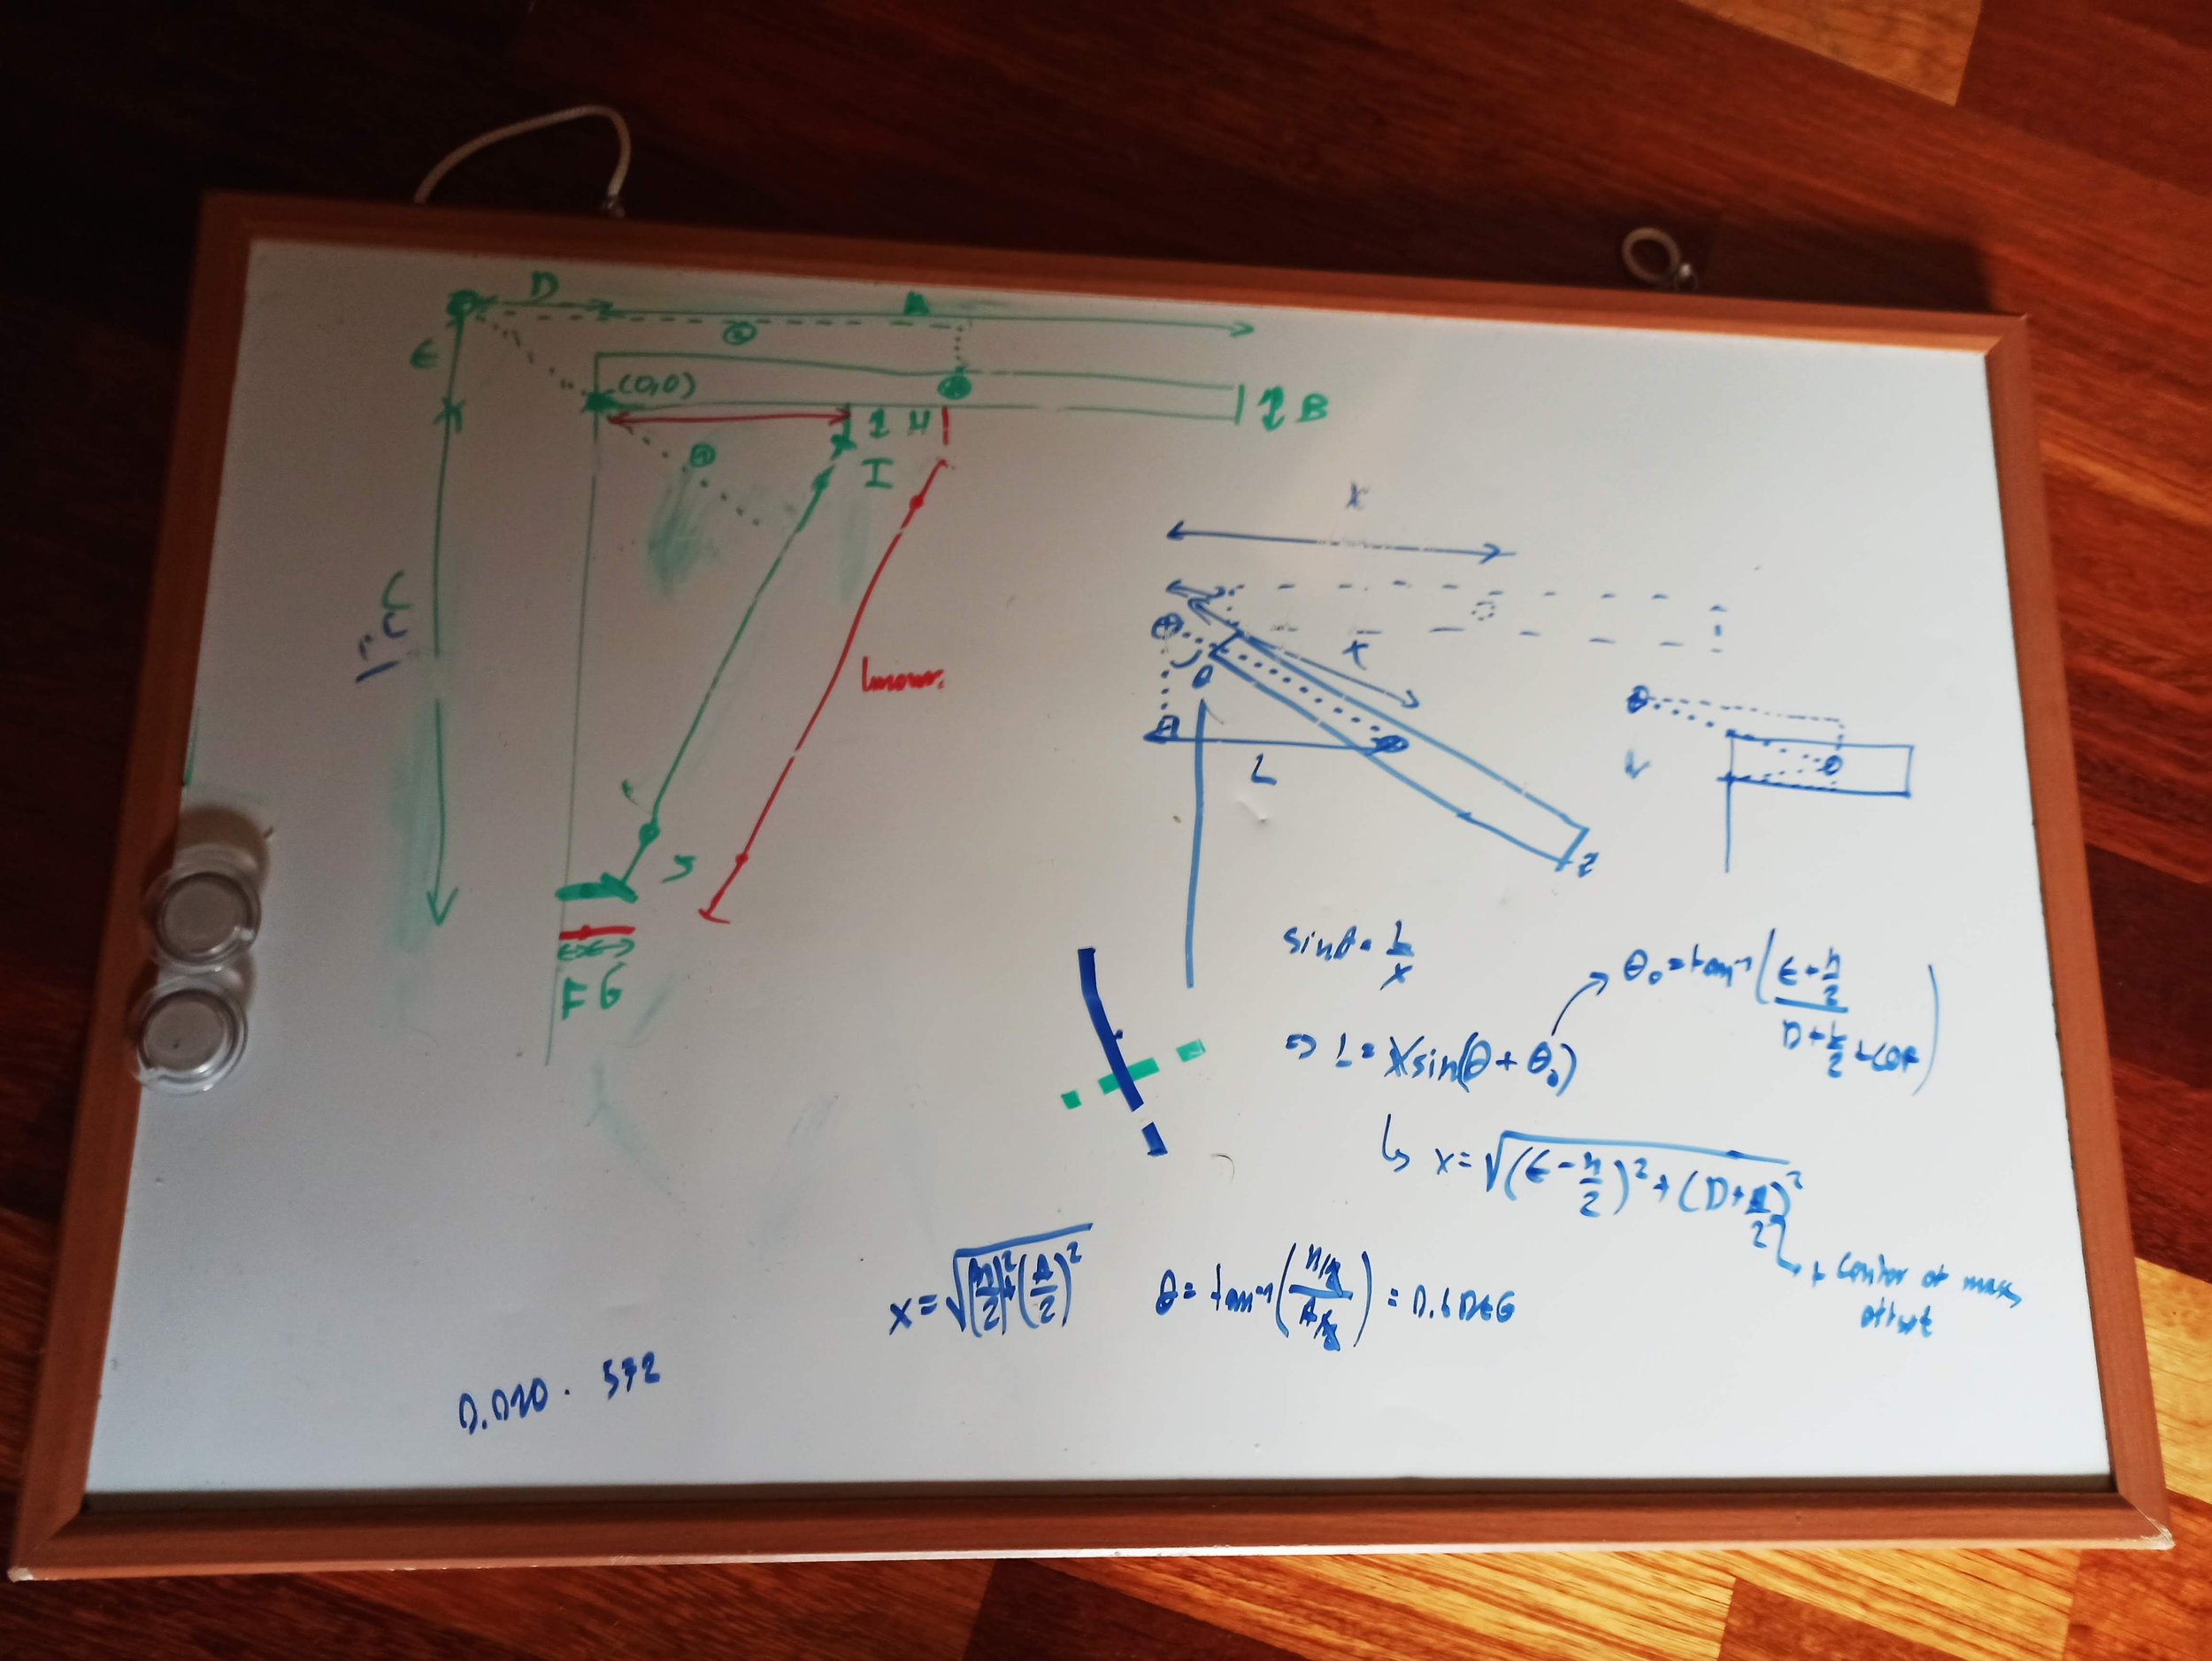 D
A
E
(0,0)
B
H
I
C
J
F G
X
x
θ
L
sinθ = L/x
⇒ L = X sin(θ + θ₀)
θ₀ = tan⁻¹((E + h/2)/(D + A/2 + COF))
↳ x = √((E - h/2)² + (D + A/2)²)
+ center of mass
offset
x = √((h/2)² + (A/2)²)
θ = tan⁻¹((h/2)/(A/2)) = 0.6 DEG
0.020 · 572